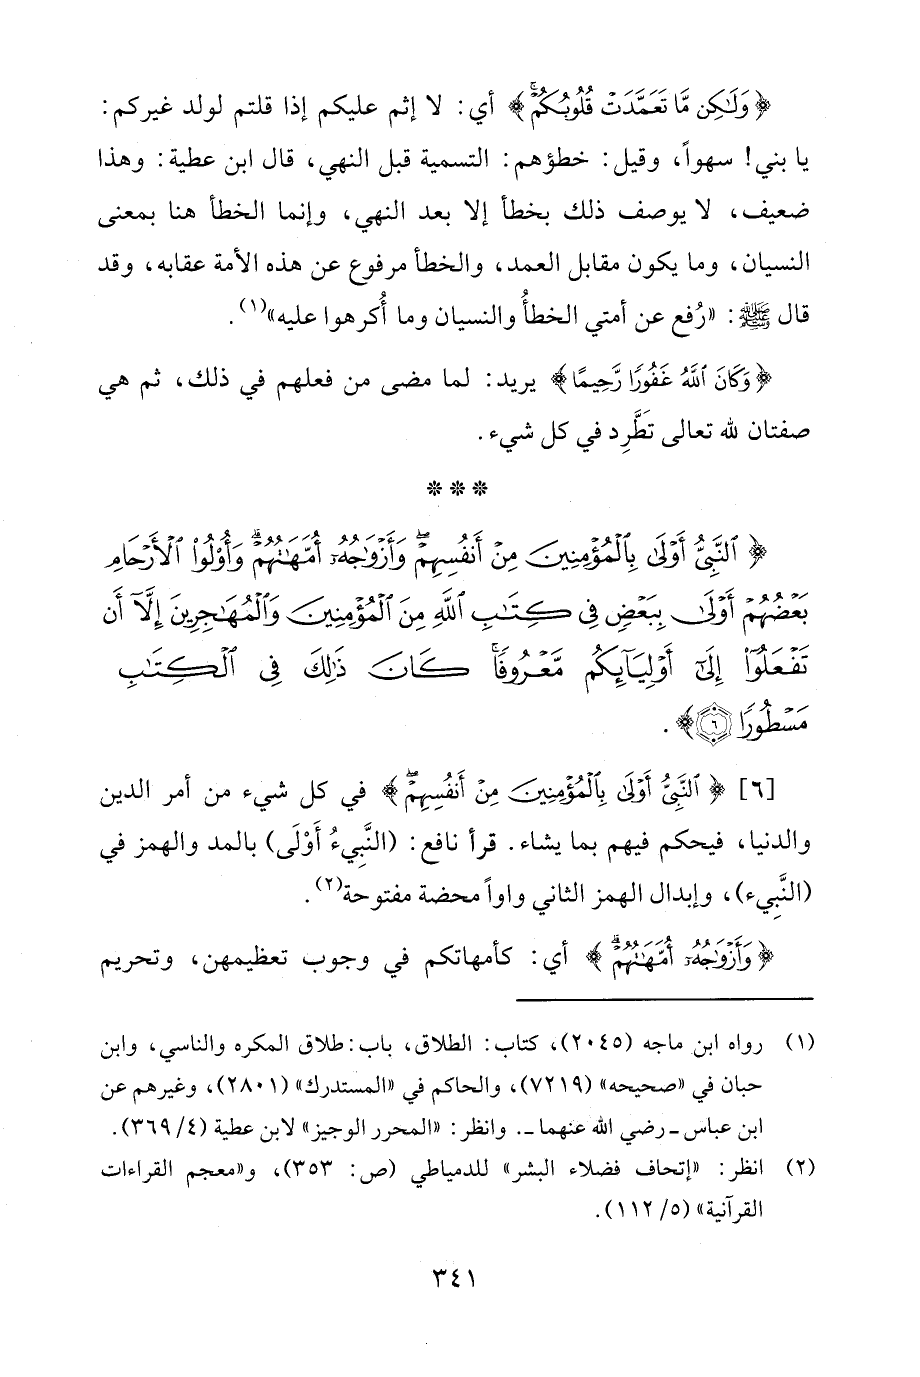 ﴿وَلَٰكِن مَّا تَعَمَّدَتْ قُلُوبُكُمْ﴾ أي: لا إثم عليكم إذا قلتم لولد غيركم:
يا بني! سهواً، وقيل: خطؤهم: التسمية قبل النهي، قال ابن عطية: وهذا
ضعيف، لا يوصف ذلك بخطأ إلا بعد النهي، وإنما الخطأ هنا بمعنى
النسيان، وما يكون مقابل العمد، والخطأ مرفوع عن هذه الأمة عقابه، وقد
قال ﷺ: «رُفع عن أمتي الخطأُ والنسيان وما أُكرهوا عليه»(١).
﴿وَكَانَ ٱللَّهُ غَفُورًا رَّحِيمًا﴾ يريد: لما مضى من فعلهم في ذلك، ثم هي
صفتان لله تعالى تَطَّرِد في كل شيء.
***
﴿ٱلنَّبِىُّ أَوْلَىٰ بِٱلْمُؤْمِنِينَ مِنْ أَنفُسِهِمْ ۖ وَأَزْوَٰجُهُۥٓ أُمَّهَٰتُهُمْ ۗ وَأُو۟لُوا۟ ٱلْأَرْحَامِ
بَعْضُهُمْ أَوْلَىٰ بِبَعْضٍ فِى كِتَٰبِ ٱللَّهِ مِنَ ٱلْمُؤْمِنِينَ وَٱلْمُهَٰجِرِينَ إِلَّآ أَن
تَفْعَلُوٓا۟ إِلَىٰٓ أَوْلِيَآئِكُم مَّعْرُوفًا ۚ كَانَ ذَٰلِكَ فِى ٱلْكِتَٰبِ
مَسْطُورًا ٦﴾.
[٦] ﴿ٱلنَّبِىُّ أَوْلَىٰ بِٱلْمُؤْمِنِينَ مِنْ أَنفُسِهِمْ ۖ﴾ في كل شيء من أمر الدين
والدنيا، فيحكم فيهم بما يشاء. قرأ نافع: (النَّبِيءُ أَوْلَى) بالمد والهمز في
(النَّبِيء)، وإبدال الهمز الثاني واواً محضة مفتوحة(٢).
﴿وَأَزْوَٰجُهُۥٓ أُمَّهَٰتُهُمْ ۗ﴾ أي: كأمهاتكم في وجوب تعظيمهن، وتحريم
(١) رواه ابن ماجه (٢٠٤٥)، كتاب: الطلاق، باب: طلاق المكره والناسي، وابن
حبان في «صحيحه» (٧٢١٩)، والحاكم في «المستدرك» (٢٨٠١)، وغيرهم عن
ابن عباس ـ رضي الله عنهما ـ. وانظر: «المحرر الوجيز» لابن عطية (٤/ ٣٦٩).
(٢) انظر: «إتحاف فضلاء البشر» للدمياطي (ص: ٣٥٣)، و«معجم القراءات
القرآنية» (٥/ ١١٢).
٣٤١